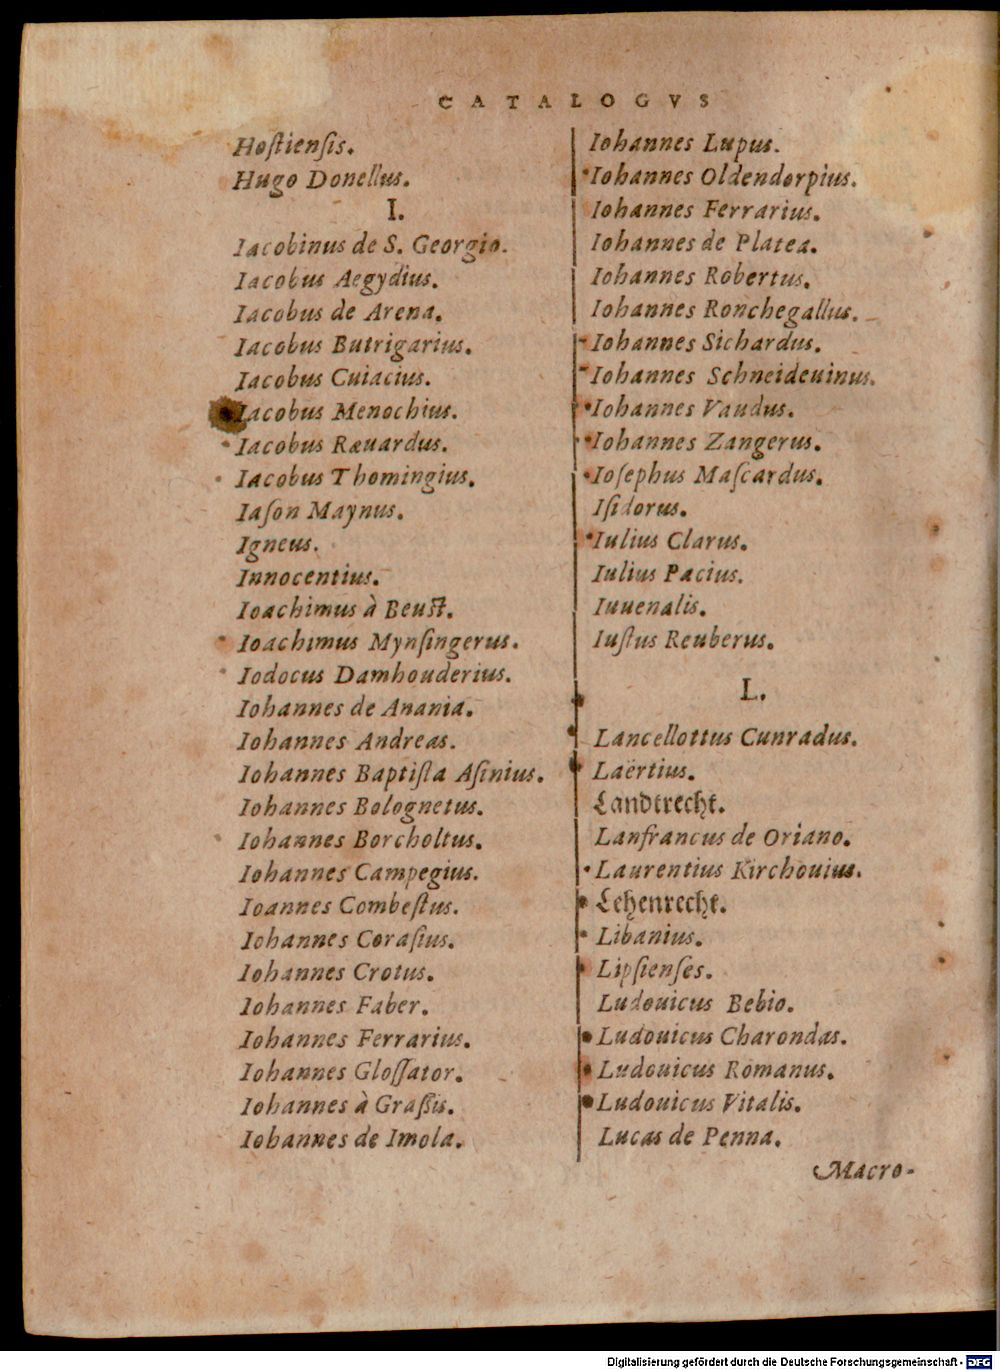 CATALOGVS
Hoſtienſis.
Hugo Donellus.
I.
Iacobinus de S. Georgio.
Iacobus Aegydius.
Iacobus de Arena.
Iacobus Butrigarius.
Iacobus Cuiacius.
Iacobus Menochius.
Iacobus Ræuardus.
Iacobus Thomingius.
Iaſon Maynus.
Igneus.
Innocentius.
Ioachimus à Beuſt.
Ioachimus Mynſingerus.
Iodocus Damhouderius.
Iohannes de Anania.
Iohannes Andreas.
Iohannes Baptiſta Aſinius.
Iohannes Bolognetus.
Iohannes Borcholtus.
Iohannes Campegius.
Ioannes Combeſtus.
Iohannes Coraſius.
Iohannes Crotus.
Iohannes Faber.
Iohannes Ferrarius.
Iohannes Gloſſator.
Iohannes à Graſſis.
Iohannes de Imola.
Iohannes Lupus.
Iohannes Oldendorpius.
Iohannes Ferrarius.
Iohannes de Platea.
Iohannes Robertus.
Iohannes Ronchegallus.
Iohannes Sichardus.
Iohannes Schneideuinus.
Iohannes Vaudus.
Iohannes Zangerus.
Ioſephus Maſcardus.
Iſidorus.
Iulius Clarus.
Iulius Pacius.
Iuuenalis.
Iuſtus Reuberus.
L.
Lancellottus Cunradus.
Laërtius.
Landtrecht.
Lanfrancus de Oriano.
Laurentius Kirchouius.
Lehenrecht.
Libanius.
Lipſienſes.
Ludouicus Bebio.
Ludouicus Charondas.
Ludouicus Romanus.
Ludouicus Vitalis.
Lucas de Penna.
Macro-
Digitalisierung gefördert durch die Deutsche Forschungsgemeinschaft - DFG